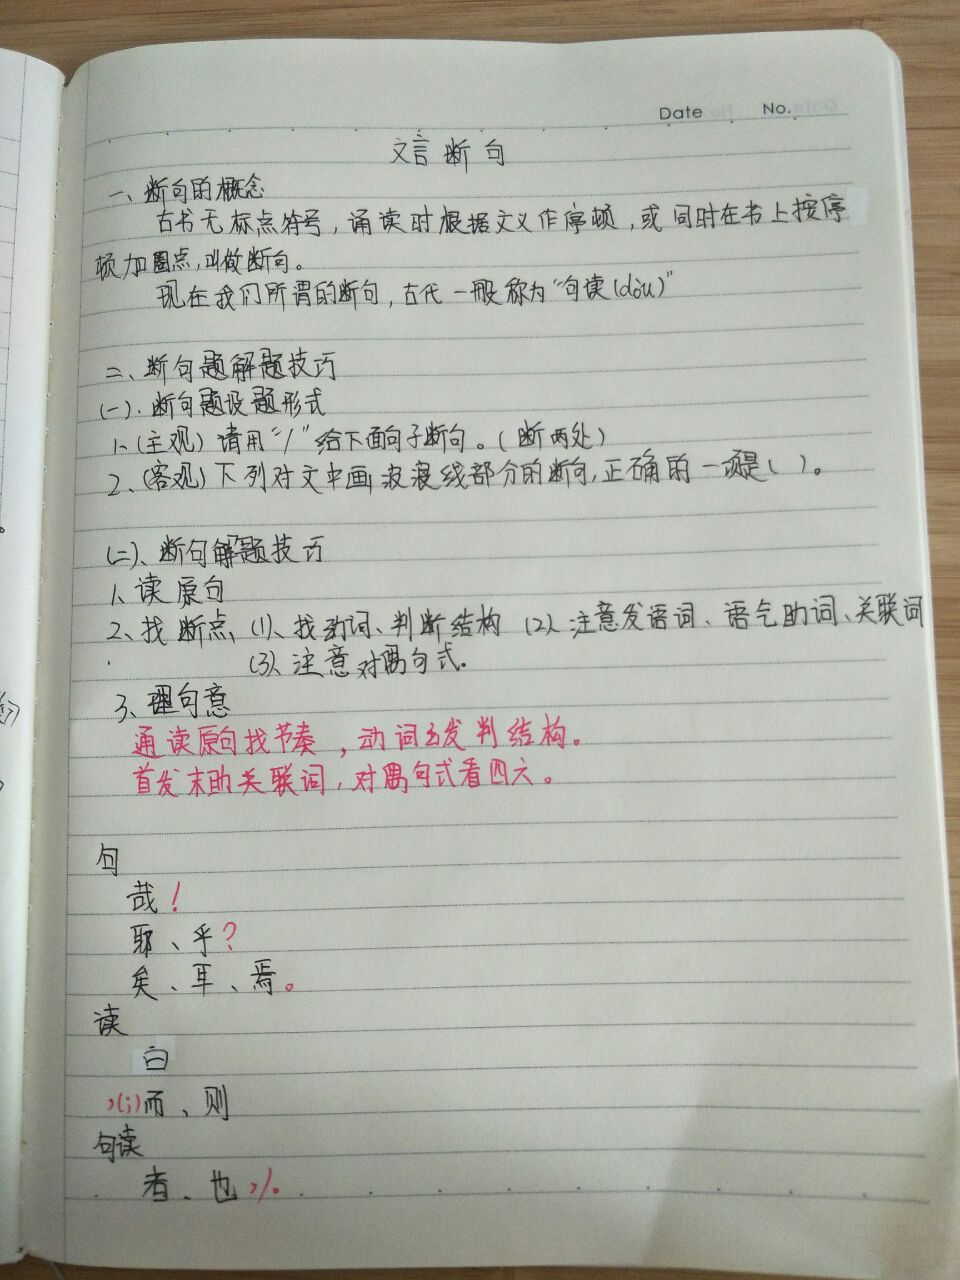 Date No.
文言断句
一、断句的概念
古书无标点符号，诵读时根据文义作停顿，或同时在书上按停
顿加圈点，叫做断句。
现在我们所谓的断句，古代一般称为“句读(dòu)”
二、断句题解题技巧
(一).断句题设题形式
1、(主观)请用“/”给下面句子断句。(断两处)
2、(客观)下列对文中画波浪线部分的断句,正确的一项是( )。
(二)、断句解题技巧
1、读原句
2、找断点 (1)、找动词、判断结构 (2)、注意发语词、语气助词、关联词
(3)、注意对偶句式.
3、理句意
通读原句找节奏，动词出发判结构。
首发末助关联词，对偶句式看四六。
句
哉！
耶、乎？
矣、耳、焉。
读
曰
，(；)而、则
句读
者、也，/。